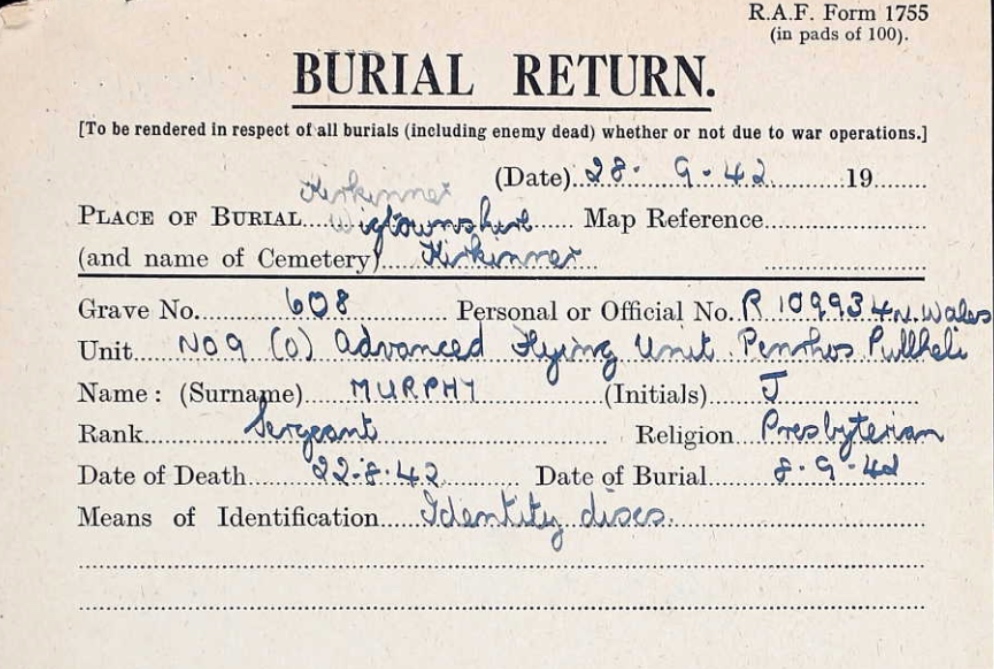 R.A.F. Form 1755
(in pads of 100).
BURIAL RETURN.
[To be rendered in respect of all burials (including enemy dead) whether or not due to war operations.]
(Date) 28. 9. 42 19
Kirkinner
PLACE OF BURIAL Wigtownshire Map Reference
(and name of Cemetery) Kirkinner
Grave No. 608 Personal or Official No. R 109934 N. Wales
Unit No 9 (O) Advanced Flying Unit. Penrhos Pullheli
Name: (Surname) MURPHY (Initials) J
Rank Sergeant Religion Presbyterian
Date of Death 22.8.42 Date of Burial 8.9.42
Means of Identification Identity discs.